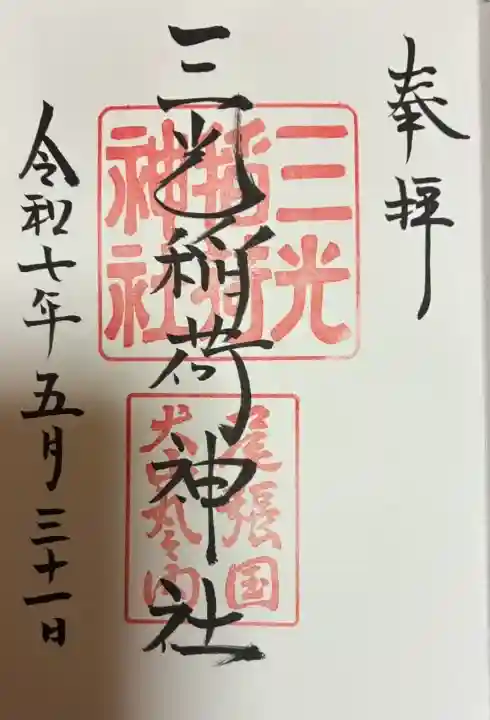 奉拝
三光稲荷神社
三光
稲荷
神社
尾張国
犬山丸の内
令和七年五月三十一日